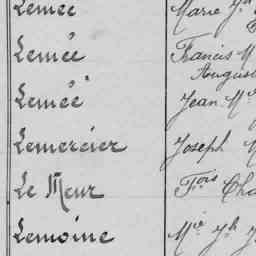 Lemée Marie Jh
Lemée Francis M
Auguste
Lemée Jean M
Lemercier Joseph M
Le Meur Fois Cha
Lemoine Mie Jh J